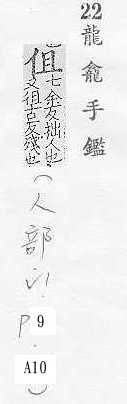 22 龍龕手鑑
伹
七余反拙人也
又徂古反也
(人部 P. 9
A10)